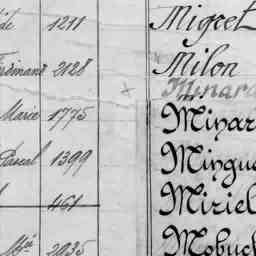 1211 Miget
Ferdinand 2128 Milon
Minar
Marie 1775 Minar
Pascal 1399 Mingu
461 Miriel
2035 Mobuc